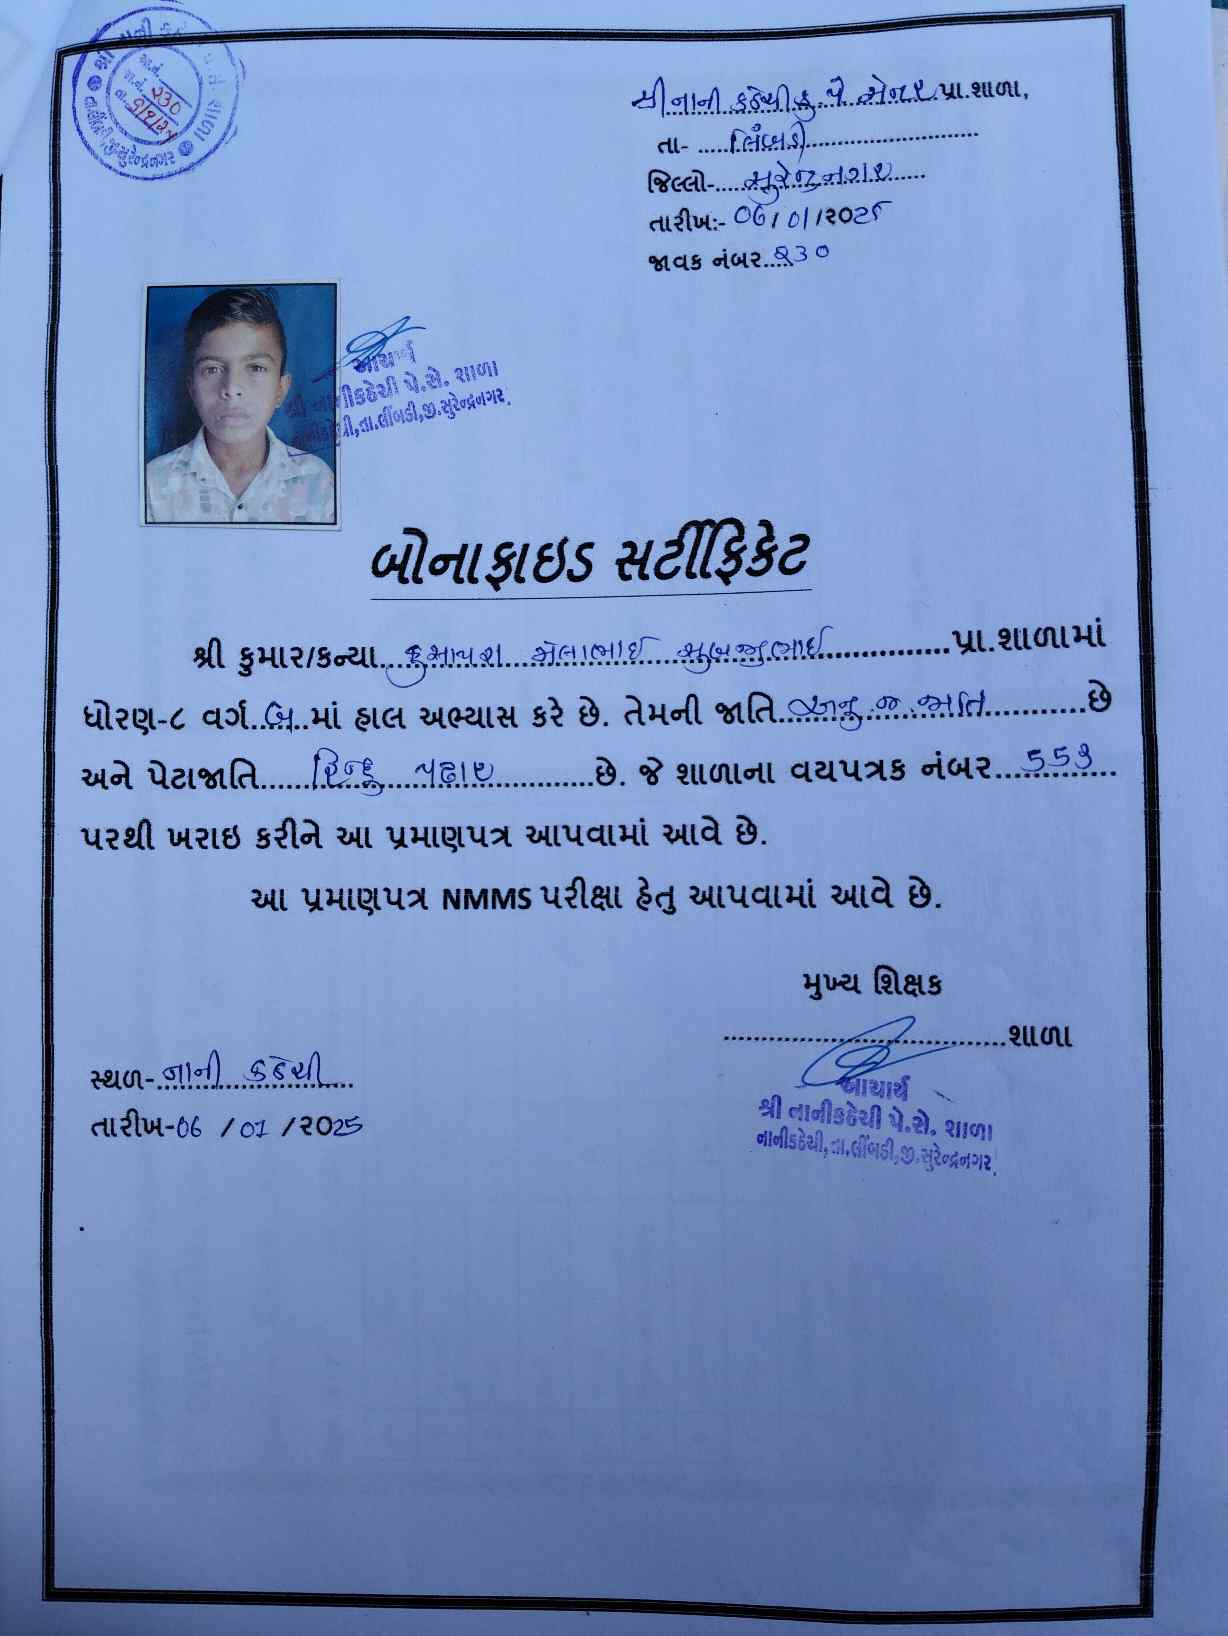 શ્રી નાની કઠેચી કુ. પે સેન્ટર પ્રા.શાળા,
તા- લિંબડી
જિલ્લો- સુરેન્દ્રનગર
તારીખ:- 06/01/2025
જાવક નંબર..૨30
૨30
તા.લીંબડી જી.સુરેન્દ્રનગર
આચાર્ય
શ્રી નાનીકઠેચી પે.સે. શાળા
નાનીકઠેચી,તા.લીંબડી,જી.સુરેન્દ્રનગર.
બોનાફાઇડ સર્ટીફિકેટ
શ્રી કુમાર/કન્યા મેલાભાઈ પ્રા.શાળામાં
ધોરણ-૮ વર્ગ માં હાલ અભ્યાસ કરે છે. તેમની જાતિ અનુ જ જાતિ છે
અને પેટાજાતિ હિન્દુ પઢાર છે. જે શાળાના વયપત્રક નંબર 553
પરથી ખરાઇ કરીને આ પ્રમાણપત્ર આપવામાં આવે છે.
આ પ્રમાણપત્ર NMMS પરીક્ષા હેતુ આપવામાં આવે છે.
મુખ્ય શિક્ષક
શાળા
સ્થળ- નાની કઠેચી
તારીખ-06 /01 /૨025
આચાર્ય
શ્રી નાનીકઠેચી પે.સે. શાળા
નાનીકઠેચી,તા.લીંબડી,જી.સુરેન્દ્રનગર.